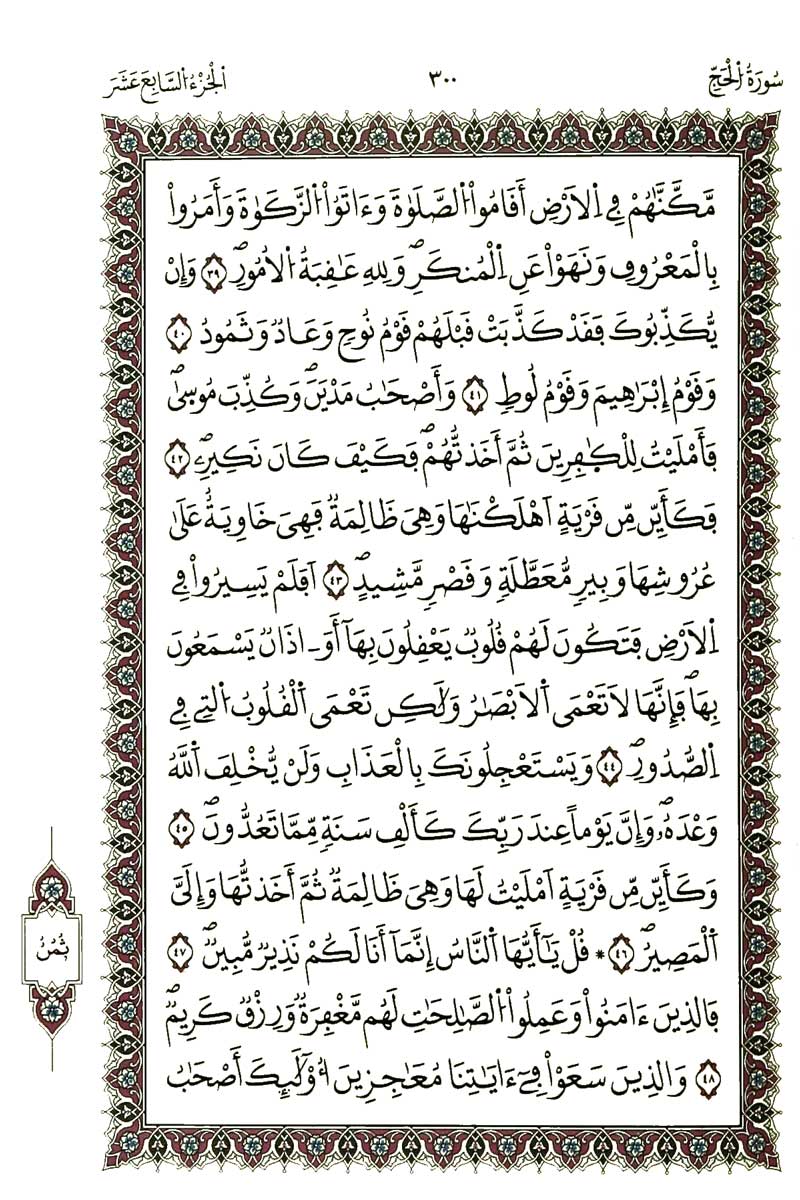 سُورَةُ الْحَجِّ ٣٠٠ الْجُزْءُ السَّابِعَ عَشَرَ
مَّكَّنَّٰهُمْ فِے اِ۬لَارْضِ أَقَامُواْ اُ۬لصَّلَوٰةَ وَءَاتَوُاْ اُ۬لزَّكَوٰةَ وَأَمَرُواْ
بِالْمَعْرُوفِ وَنَهَوْاْ عَنِ اِ۬لْمُنكَرِۖ وَلِلهِ عَٰقِبَةُ اُ۬لُامُورِۖ ٣٩ وَإِنْ
يُّكَذِّبُوكَ فَقَدْ كَذَّبَتْ قَبْلَهُمْ قَوْمُ نُوحٖ وَعَادٞ وَثَمُودُ ٤٠
وَقَوْمُ إِبْرَٰهِيمَ وَقَوْمُ لُوطٖ ٤١ وَأَصْحَٰبُ مَدْيَنَۖ وَكُذِّبَ مُوسۭيٰۖ
فَأَمْلَيْتُ لِلْكٰ۪فِرِينَ ثُمَّ أَخَذتُّهُمْۖ فَكَيْفَ كَانَ نَكِيرِۦۖ ٤٢
فَكَأَيِّن مِّن قَرْيَةٍ اَهْلَكْنَٰهَا وَهِيَ ظَالِمَةٞ فَهِيَ خَاوِيَةٌ عَلَيٰ
عُرُوشِهَا وَبِيرٖ مُّعَطَّلَةٖ وَقَصْرٖ مَّشِيدٍۖ ٤٣ اَفَلَمْ يَسِيرُواْ فِے
اِ۬لَارْضِ فَتَكُونَ لَهُمْ قُلُوبٞ يَعْقِلُونَ بِهَآ أَوَ اٰذَانٞ يَسْمَعُونَ
بِهَاۖ فَإِنَّهَا لَا تَعْمَي اَ۬لَابْصَٰرُ وَلَٰكِن تَعْمَي اَ۬لْقُلُوبُ اُ۬لتِے فِے
اِ۬لصُّدُورِۖ ٤٤ وَيَسْتَعْجِلُونَكَ بِالْعَذَابِ وَلَنْ يُّخْلِفَ اَ۬للَّهُ
وَعْدَهُۥۖ وَإِنَّ يَوْماً عِندَ رَبِّكَ كَأَلْفِ سَنَةٖ مِّمَّا تَعُدُّونَۖ ٤٥
وَكَأَيِّن مِّن قَرْيَةٍ اَمْلَيْتُ لَهَا وَهِيَ ظَالِمَةٞ ثُمَّ أَخَذتُّهَا وَإِلَيَّ
اَ۬لْمَصِيرُۖ ٤٦ * قُلْ يَٰٓأَيُّهَا اَ۬لنَّاسُ إِنَّمَآ أَنَا لَكُمْ نَذِيرٞ مُّبِينٞۖ ٤٧
فَالذِينَ ءَامَنُواْ وَعَمِلُواْ اُ۬لصَّٰلِحَٰتِ لَهُم مَّغْفِرَةٞ وَرِزْقٞ كَرِيمٞۖ
٤٨ وَالذِينَ سَعَوْاْ فِےٓ ءَايَٰتِنَا مُعَٰجِزِينَ أُوْلَٰٓئِكَ أَصْحَٰبُ
ثُمُنُ